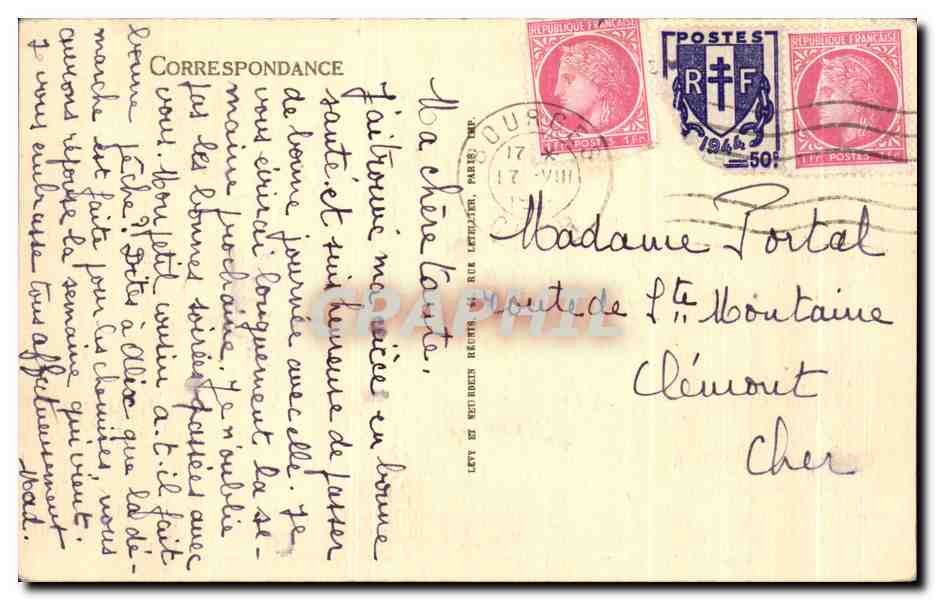 CORRESPONDANCE
Ma chère tante,
J'ai trouvé ma nièce en bonne
santé et suis heureuse de passer
de bonne journée avec elle. Je
vous écrirai longuement la se-
maine prochaine. Je n'oublie
pas les bonnes soirées passées avec
vous. Mon petit cousin a-t-il fait
bonne pêche? Dites à Alix que la dé-
marche est faite pour les chemises, nous
aurons réponse la semaine qui vient.
Je vous embrasse tous affectueusement
Mad.
LÉVY ET NEURDEIN RÉUNIS, 44 RUE LETELLIER, PARIS, IMP.
REPUBLIQUE FRANÇAISE
1 Fr POSTES 1 Fr
POSTES
R F
1944
50c
REPUBLIQUE FRANÇAISE
1 Fr POSTES 1 Fr
BOURGES
17 H
17 -VIII
CHER
Madame Portal
route de Ste Montaine
Clémont
Cher
CPAPHIL